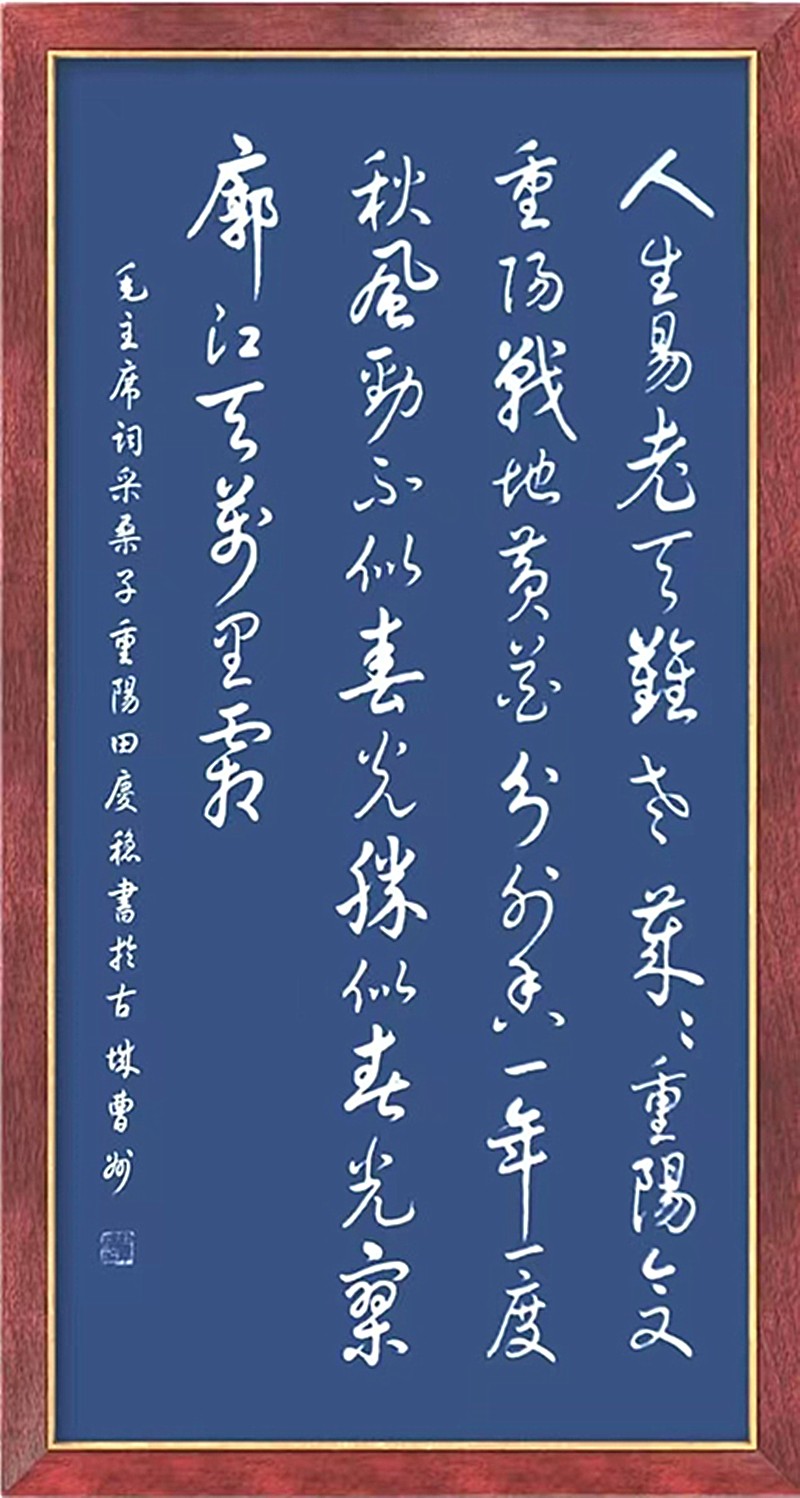 人生易老天難老歲〻重陽今又
重阳戰地黄花分外香一年一度
秋風勁不似春光勝似春光寥
廓江天萬里霜
毛主席詞采桑子重陽田慶稳書於古城曹州